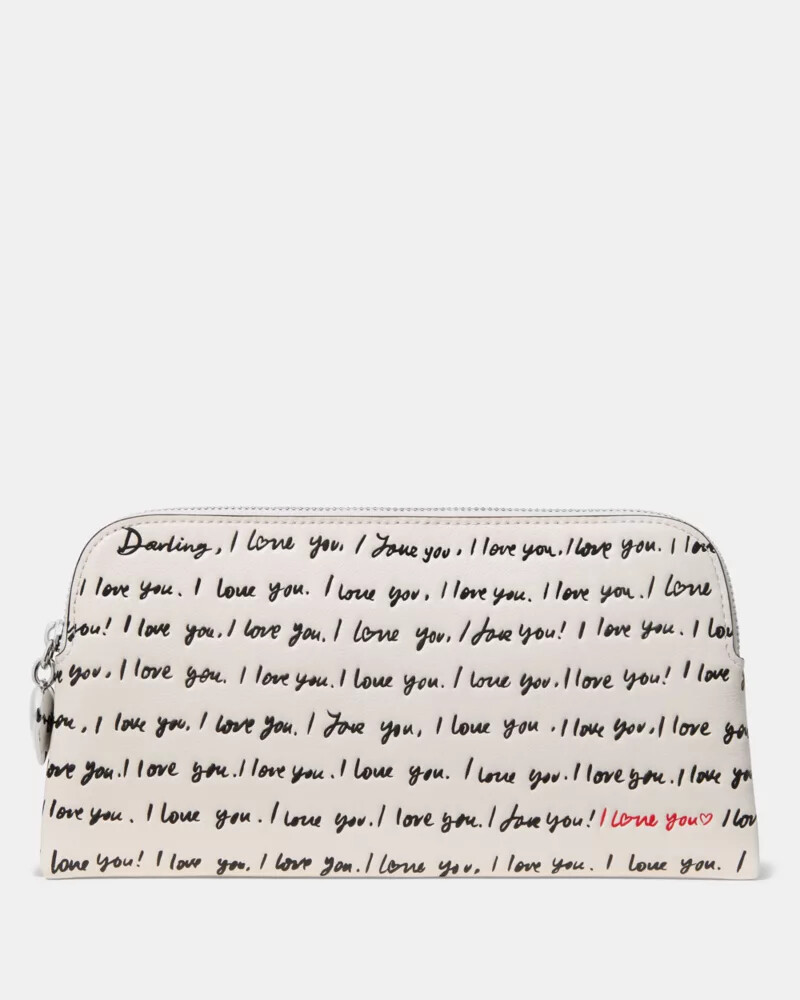 Darling, I love you. I love you. I love you. I love you. I love
I love you. I love you. I love you. I love you. I love you. I love
you! I love you. I love you. I love you. I love you! I love you. I lov
you. I love you. I love you. I love you. I love you. I love you! I love
you, I love you. I love you. I love you, I love you. I love you. I love yo
ove you. I love you. I love you. I love you. I love you. I love you. I love yo
I love you. I love you. I love you. I love you. I love you! I love you♡ I lov
love you! I love you. I love you. I love you, I love you. I love you. I